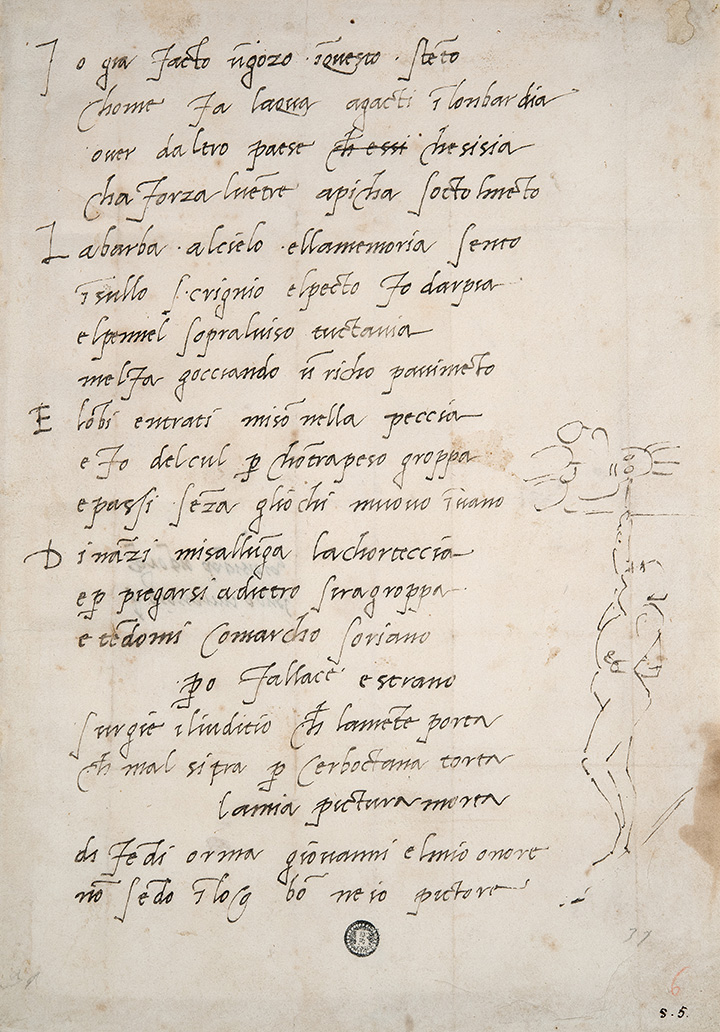 I o gia facto ū gozo īquesto stēto
chome fa laqua agacti ī lonbardia
over daltro paese c̄h essi chesisia
cha forza lvētre apicha socto lmēto
L abarba alcielo ellamemoria sento
ī sullo scrignio elpecto fo darpia
elpennel sopralviso tuctavia
mel fa gocciando ū richo pavimēto
E lōbi entrati misō nella peccia
e fo delcul p̱ chōtrapeso groppa
e passi sēza gliochi muovo ī vano
D ināzi misallūga lachorteccia
e p̱ piegarsi adietro siragroppa
e tēdomi comarcho soriano
p̱o fallace e strano
surgie iliuditio c̄h lamēte porta
c̄h mal sitra p̱ cerboctana torta
lamia pictura morta
di fēdi orma giovanni elmio onore
nō sēdo ī loco bō ne io pictore
37
6
s.5.